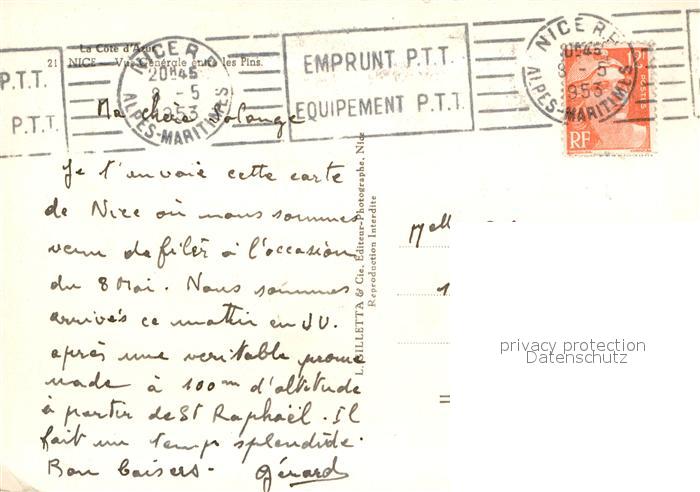 La Côte d'Azur
21 NICE — Vue Générale entre les Pins.
NICE R.P.
20H45
8 - 5
1953
ALPES-MARITIMES
P.T.T.
P.T.T.
EMPRUNT P.T.T.
EQUIPEMENT P.T.T.
NICE R.P.
20H45
8 - 5
1953
ALPES-MARITIMES
12F
POSTES
RF
Ma chère Solange
Je t'envoie cette carte
de Nice où nous sommes
venu defiler à l'occasion
du 8 Mai. Nous sommes
arrivés ce mathin en JU.
après une veritable prome
nade à 100m d'altitude
à partir de St Raphaël. Il
fait un temps splendide.
Bon baisers - Gérard
L. GILLETTA & Cie, Editeur-Photographe, Nice
Reproduction Interdite
Melle
1
privacy protection
Datenschutz